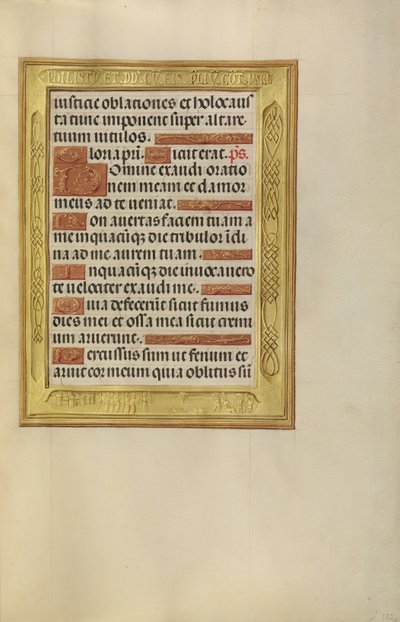 iusticie oblationes et holocaus
ta tunc imponent super altare
tuum uitulos.
Gloria pri. Sicut erat. ps.
Domine exaudi oratio
nem meam et clamor
meus ad te ueniat.
Non auertas faciem tuam a
me in quacūqꝫ die tribulor īcli
na ad me aurem tuam.
In quacūqꝫ die inuocauero
te uelociter exaudi me.
Quia defecerūt sicut fumus
dies mei et ossa mea sicut cremi
um aruerunt.
Percussus sum ut fenum et
aruit cor meum quia oblitus sū